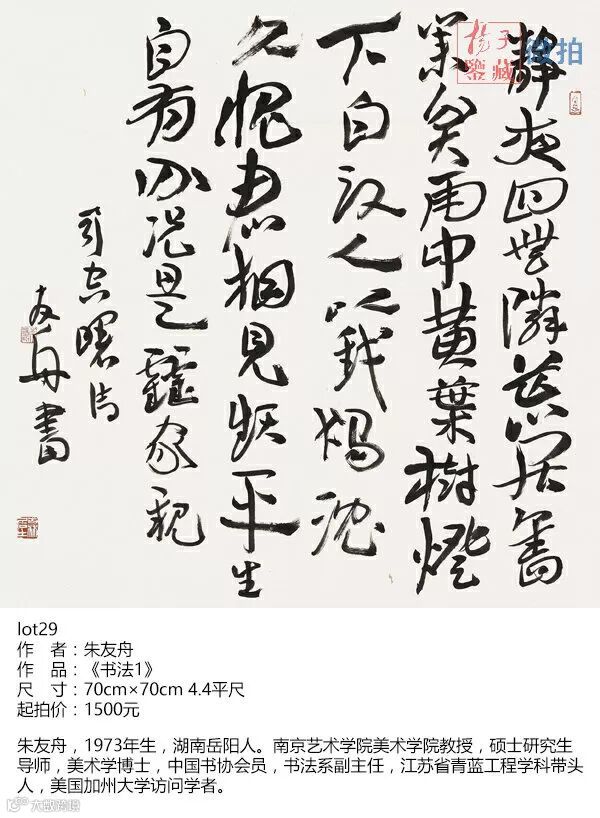 揚子
鑒藏
微拍
靜夜四無隣荒居舊
業貧雨中黄葉樹燈
下白頭人以我獨沈
久愧君相見頻平生
自有分況是家親
司空曙詩
友舟書
lot29
作 者：朱友舟
作 品：《书法1》
尺 寸：70cm×70cm 4.4平尺
起拍价：1500元
朱友舟，1973年生，湖南岳阳人。南京艺术学院美术学院教授，硕士研究生
导师，美术学博士，中国书协会员，书法系副主任，江苏省青蓝工程学科带头
人，美国加州大学访问学者。
大数跨境